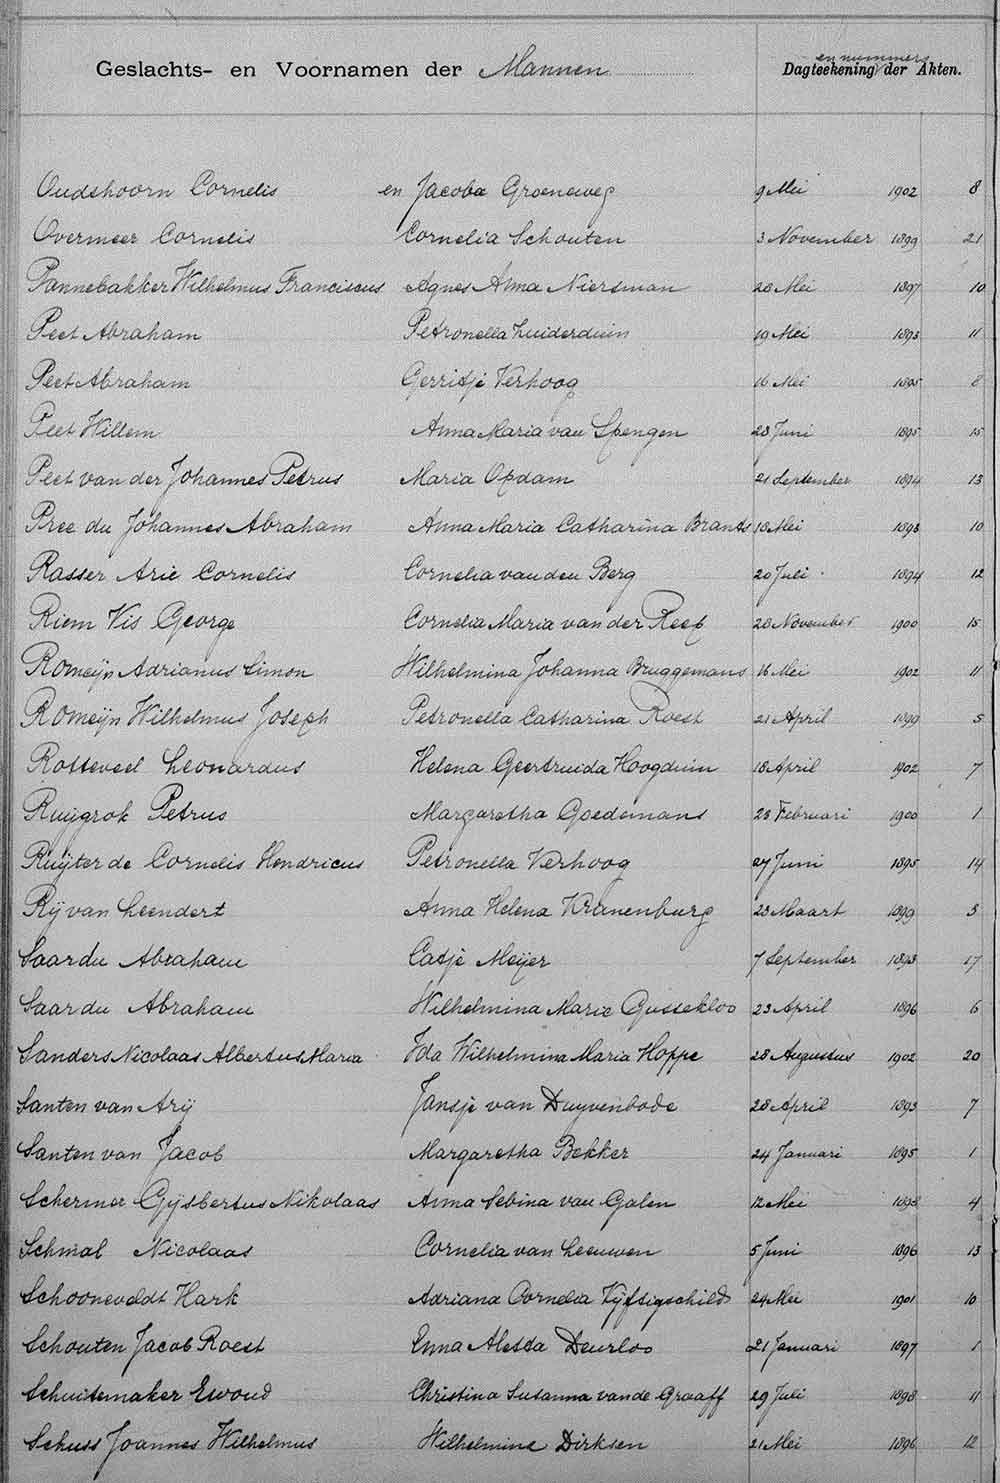 Geslachts- en Voornamen der Mannen Dagteekening en nummers der Akten.
Oudshoorn Cornelis en Jacoba Groeneweg 9 Mei 1902 8
Overmeer Cornelis Cornelia Schouten 3 November 1899 21
Pannebakker Wilhelmus Franciscus Agnes Anna Niersman 20 Mei 1897 10
Peet Abraham Petronella Zuiderduin 19 Mei 1893 11
Peet Abraham Gerritje Verhoog 16 Mei 1895 8
Peet Willem Anna Maria van Spengen 28 Juni 1895 15
Peet van der Johannes Petrus Maria Opdam 21 September 1894 13
Pree du Johannes Abraham Anna Maria Catharina Brands 18 Mei 1893 10
Rasser Arie Cornelis Cornelia van den Berg 20 Juli 1894 12
Riem Vis George Cornelia Maria van der Reep 28 November 1900 15
Romeijn Adrianus Simon Wilhelmina Johanna Bruggemans 16 Mei 1902 11
Romeijn Wilhelmus Joseph Petronella Catharina Roest 21 April 1899 5
Rotteveel Leonardus Helena Geertruida Hoogduin 18 April 1902 7
Ruijgrok Petrus Margaretha Goedemans 23 Februari 1900 1
Ruijter de Cornelis Hendricus Petronella Verhoog 27 Juni 1895 14
Rij van Leendert Anna Helena Kranenburg 23 Maart 1899 3
Saar du Abraham Catje Meijer 7 September 1893 17
Saar du Abraham Wilhelmina Marie Gussekloo 23 April 1896 6
Sanders Nicolaas Albertus Maria Ida Wilhelmina Maria Hoppe 28 Augustus 1902 20
Santen van Arij Jansje van Duyvenbode 28 April 1893 7
Santen van Jacob Margaretha Bekker 24 Januari 1895 1
Schermer Gijsbertus Nikolaas Anna Sebina van Galen 12 Mei 1898 4
Schmal Nicolaas Cornelia van Leeuwen 5 Juni 1896 13
Schooneveldt Hark Adriana Cornelia Vijftigschild 24 Mei 1901 10
Schouten Jacob Roest Enna Aletta Deurloo 21 Januari 1897 1
Schuitemaker Ewoud Christina Susanna van de Graaff 29 Juli 1898 11
Schuss Joannes Wilhelmus Wilhelmina Dirksen 21 Mei 1896 12